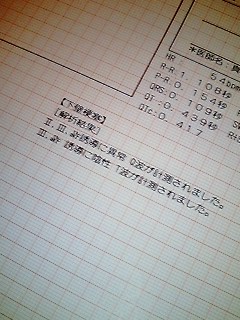 ※医師名:
HR 54bpm
R-R:1.108秒
P-R:0.154秒
QRS:0.109秒
QT:0.439秒
QTc:0.417
【下壁梗塞】
[解析結果]
Ⅱ, Ⅲ, aVF誘導に異常 Q波が計測されました。
Ⅲ, aVF 誘導に陰性 T波が計測されました。